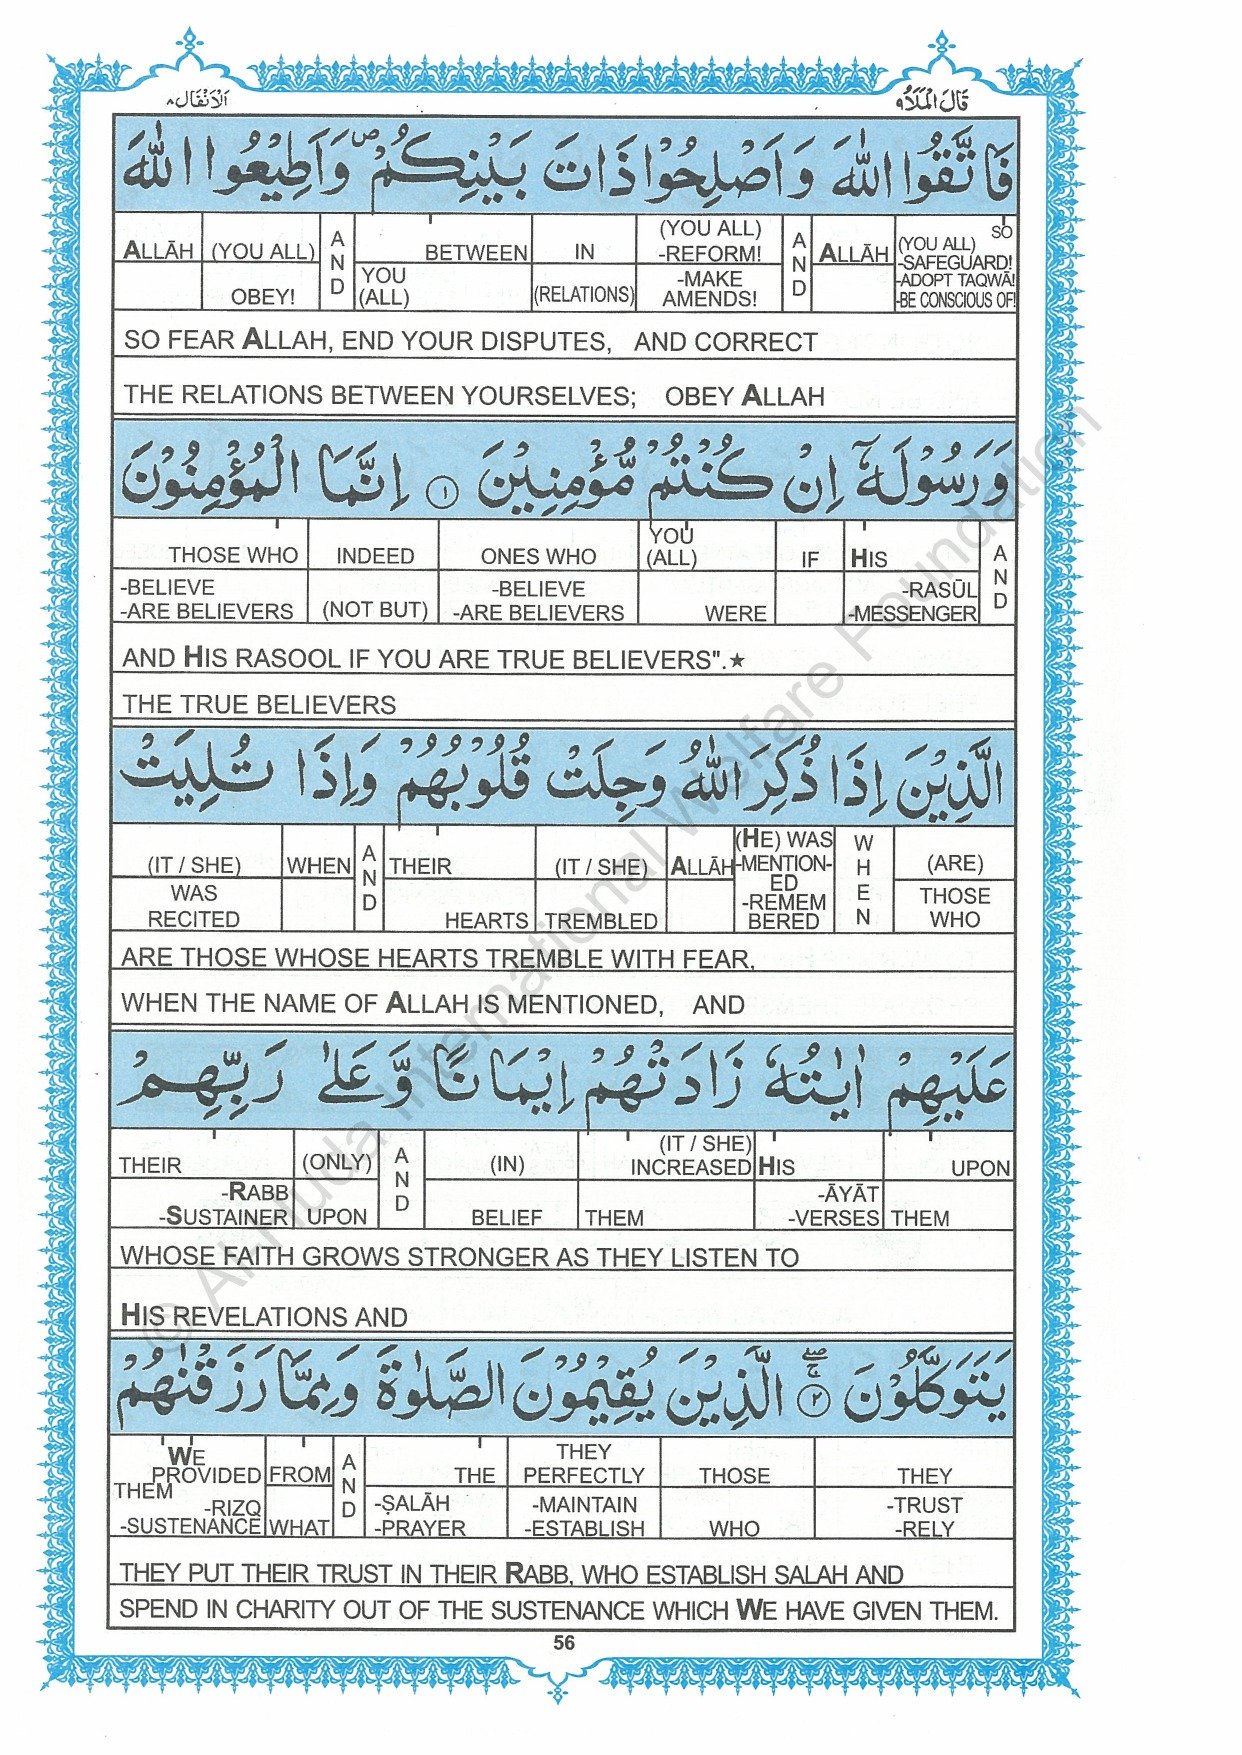 قَالَ الْمَلَاُ ٩ الْاَنْفَال ٨
فَاتَّقُوا اللّٰهَ وَاَصْلِحُوْا ذَاتَ بَيْنِكُمْ ۖ وَاَطِيْعُوا اللّٰهَ
ALLĀH (YOU ALL) OBEY! AND BETWEEN YOU (ALL) IN (RELATIONS) (YOU ALL) -REFORM! -MAKE AMENDS! AND ALLĀH SO (YOU ALL) -SAFEGUARD! -ADOPT TAQWĀ! -BE CONSCIOUS OF!
SO FEAR ALLAH, END YOUR DISPUTES, AND CORRECT
THE RELATIONS BETWEEN YOURSELVES; OBEY ALLAH
وَرَسُوْلَهٗٓ اِنْ كُنْتُمْ مُّؤْمِنِيْنَ ۝١ اِنَّمَا الْمُؤْمِنُوْنَ
THOSE WHO -BELIEVE -ARE BELIEVERS INDEED (NOT BUT) ONES WHO -BELIEVE -ARE BELIEVERS YOU (ALL) WERE IF HIS -RASŪL -MESSENGER AND
AND HIS RASOOL IF YOU ARE TRUE BELIEVERS".★
THE TRUE BELIEVERS
الَّذِيْنَ اِذَا ذُكِرَ اللّٰهُ وَجِلَتْ قُلُوْبُهُمْ وَاِذَا تُلِيَتْ
(IT / SHE) WAS RECITED WHEN AND THEIR HEARTS (IT / SHE) TREMBLED ALLĀH (HE) WAS -MENTION-ED -REMEM BERED WHEN (ARE) THOSE WHO
ARE THOSE WHOSE HEARTS TREMBLE WITH FEAR,
WHEN THE NAME OF ALLAH IS MENTIONED, AND
عَلَيْهِمْ اٰيٰتُهٗ زَادَتْهُمْ اِيْمَانًا وَّعَلٰى رَبِّهِمْ
THEIR -RABB -SUSTAINER (ONLY) UPON AND (IN) BELIEF (IT / SHE) INCREASED THEM HIS -ĀYĀT -VERSES UPON THEM
WHOSE FAITH GROWS STRONGER AS THEY LISTEN TO
HIS REVELATIONS AND
يَتَوَكَّلُوْنَ ۝٢ الَّذِيْنَ يُقِيْمُوْنَ الصَّلٰوةَ وَمِمَّا رَزَقْنٰهُمْ
WE PROVIDED THEM -RIZQ -SUSTENANCE FROM WHAT AND THE -ṢALĀH -PRAYER THEY PERFECTLY -MAINTAIN -ESTABLISH THOSE WHO THEY -TRUST -RELY
THEY PUT THEIR TRUST IN THEIR RABB, WHO ESTABLISH SALAH AND
SPEND IN CHARITY OUT OF THE SUSTENANCE WHICH WE HAVE GIVEN THEM.
56
© Al-Huda International Welfare Foundation